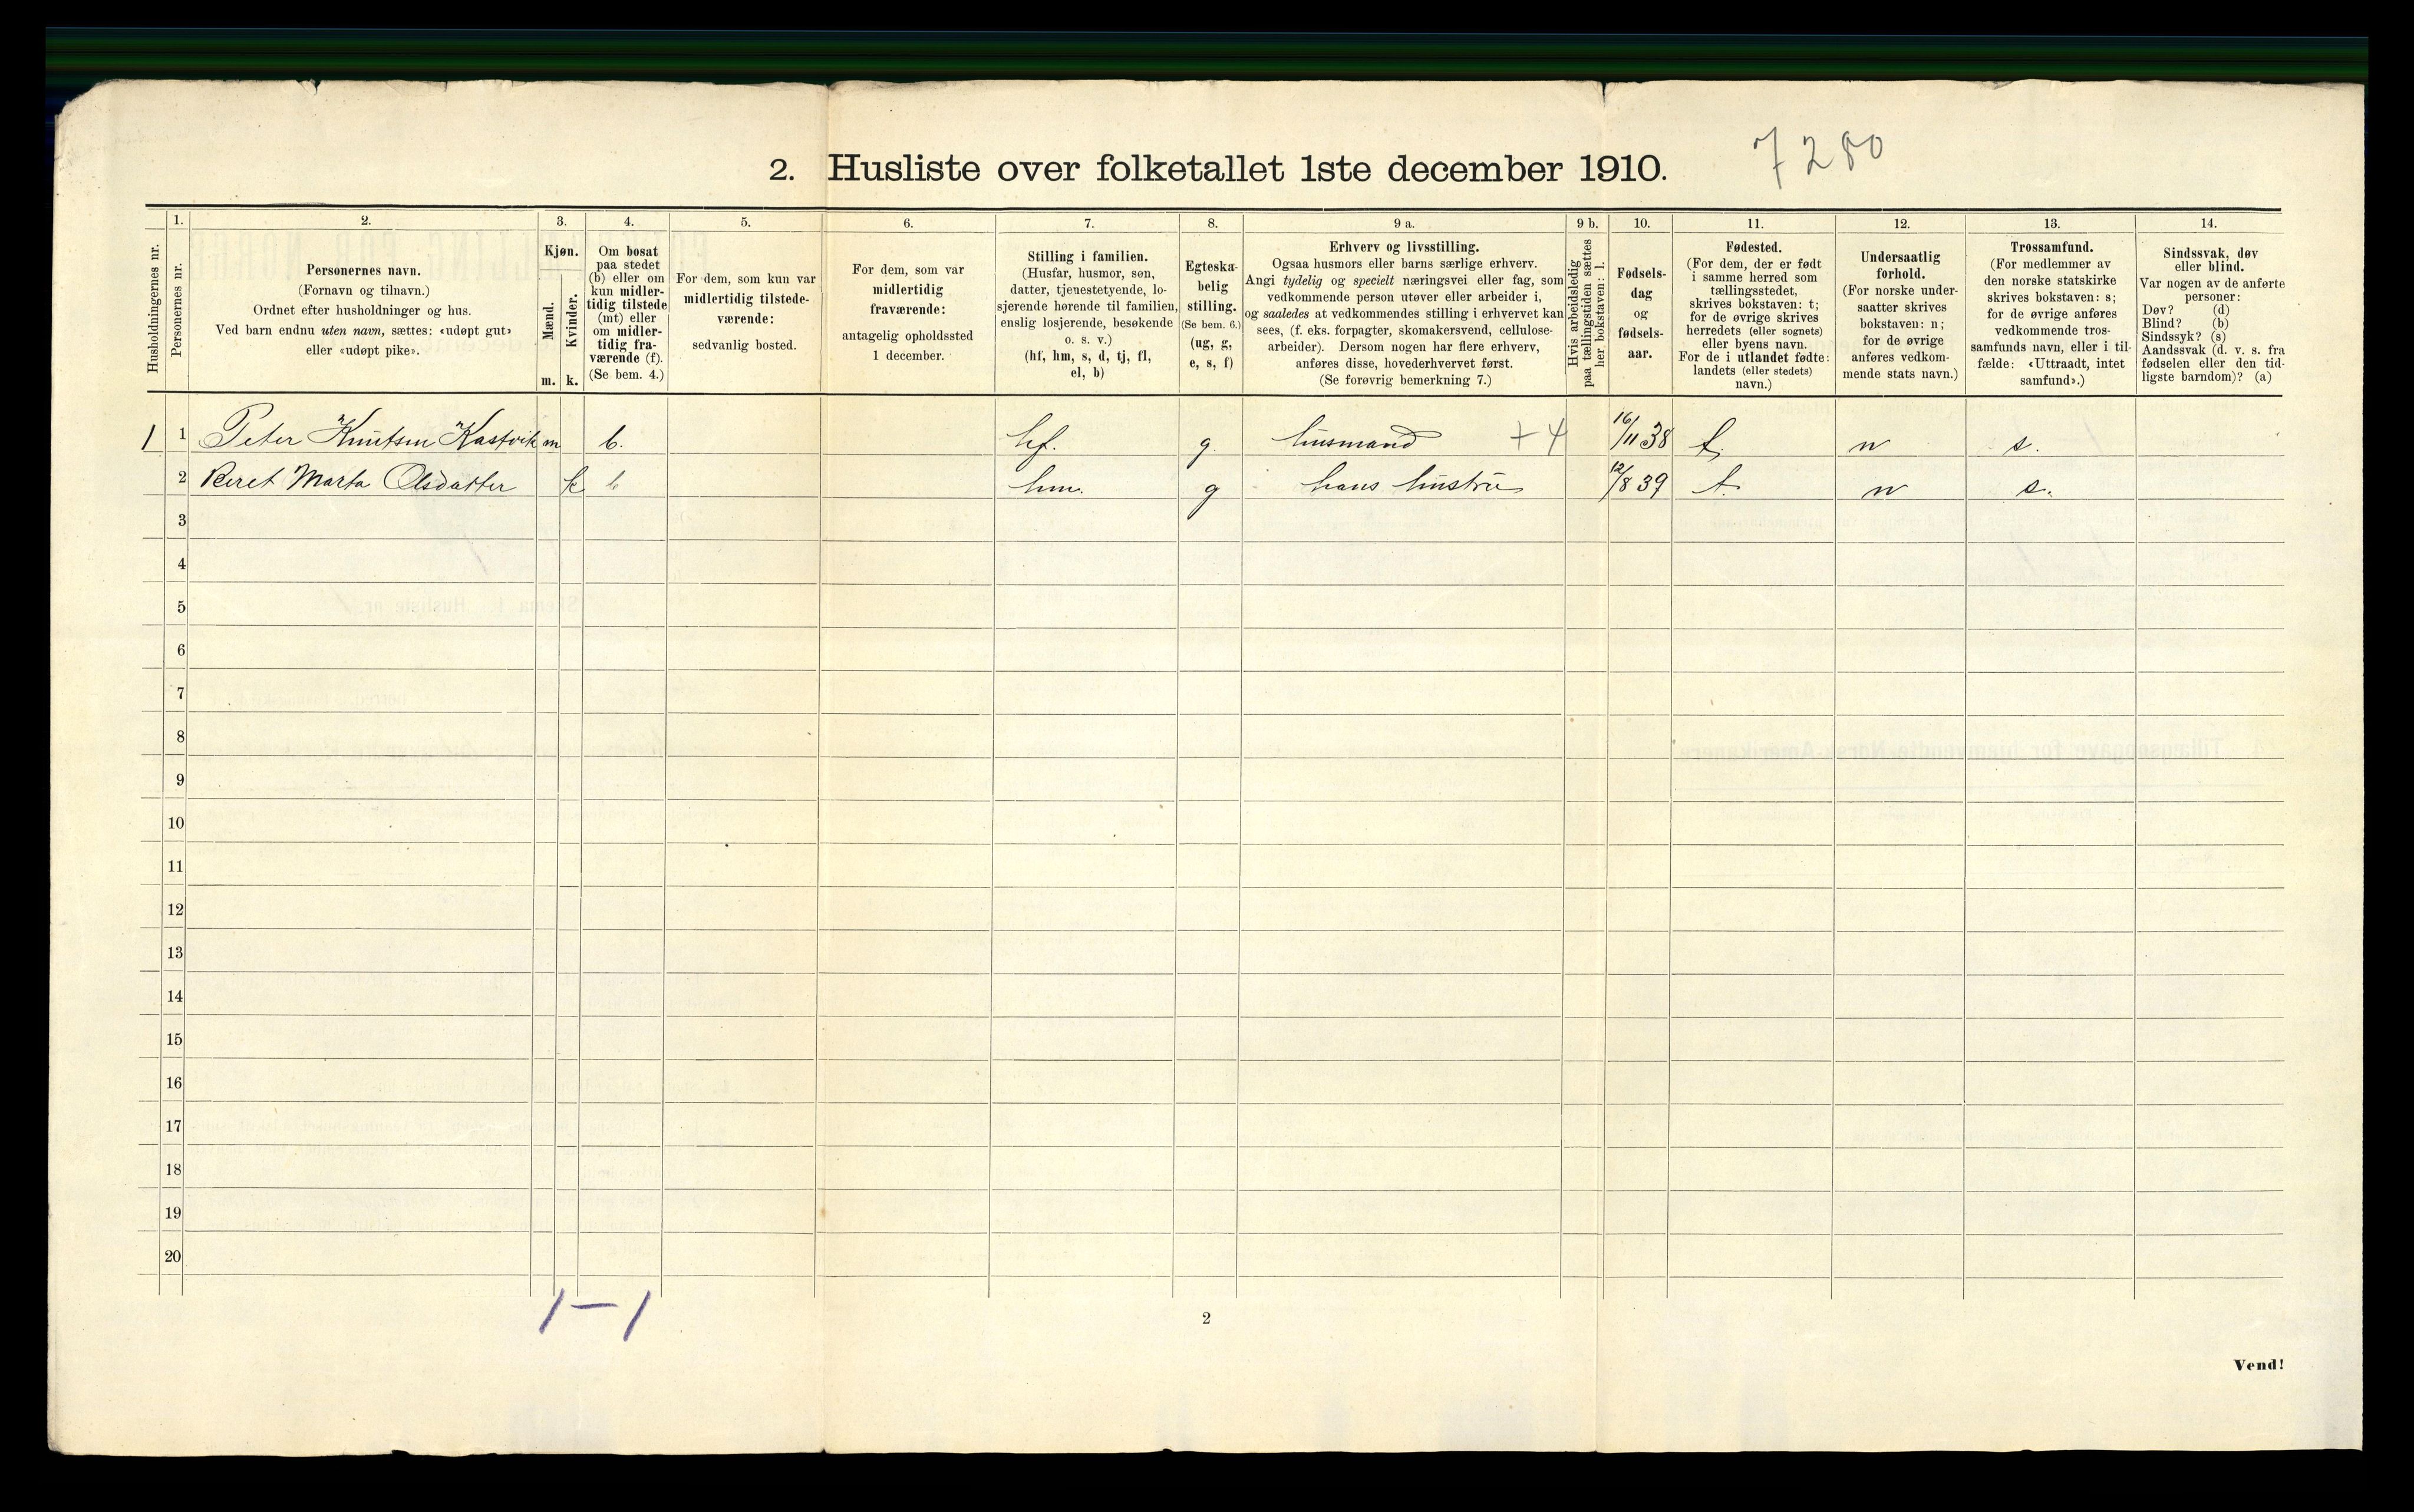 2. Husliste over folketallet 1ste december 1910.
7280
1.
2.
3.
4.
5.
6.
7.
8.
9 a.
9 b.
10.
11.
12.
13.
14.
Husholdningernes nr.
Personernes nr.
Personernes navn.
(Fornavn og tilnavn.)
Ordnet efter husholdninger og hus.
Ved barn endnu uten navn, sættes: «udøpt gut»
eller «udøpt pike».
Kjøn.
Mænd.
Kvinder.
m.
k.
Om bosat
paa stedet
(b) eller om
kun midler-
tidig tilstede
(mt) eller
om midler-
tidig fra-
værende (f).
(Se bem. 4.)
For dem, som kun var
midlertidig tilstede-
værende:
sedvanlig bosted.
For dem, som var
midlertidig
fraværende:
antagelig opholdssted
1 december.
Stilling i familien.
(Husfar, husmor, søn,
datter, tjenestetyende, lo-
sjerende hørende til familien,
enslig losjerende, besøkende
o. s. v.)
(hf, hm, s, d, tj, fl,
el, b)
Egteska-
belig
stilling.
(Se bem. 6.)
(ug, g,
e, s, f)
Erhverv og livsstilling.
Ogsaa husmors eller barns særlige erhverv.
Angi tydelig og specielt næringsvei eller fag, som
vedkommende person utøver eller arbeider i,
og saaledes at vedkommendes stilling i erhvervet kan
sees, (f. eks. forpagter, skomakersvend, cellulose-
arbeider). Dersom nogen har flere erhverv,
anføres disse, hovederhvervet først.
(Se forøvrig bemerkning 7.)
Hvis arbeidsledig
paa tællingstiden sættes
her bokstaven: l.
Fødsels-
dag
og
fødsels-
aar.
Fødested.
(For dem, der er født
i samme herred som
tællingsstedet,
skrives bokstaven: t;
for de øvrige skrives
herredets (eller sognets)
eller byens navn.
For de i utlandet fødte:
landets (eller stedets)
navn.)
Undersaatlig
forhold.
(For norske under-
saatter skrives
bokstaven: n;
for de øvrige
anføres vedkom-
mende stats navn.)
Trossamfund.
(For medlemmer av
den norske statskirke
skrives bokstaven: s;
for de øvrige anføres
vedkommende tros-
samfunds navn, eller i til-
fælde: «Uttraadt, intet
samfund».)
Sindssvak, døv
eller blind.
Var nogen av de anførte
personer:
Døv? (d)
Blind? (b)
Sindssyk? (s)
Aandssvak (d. v. s. fra
fødselen eller den tid-
ligste barndom)? (a)
1 1 Peter Knutsen Kastvik m b. hf. g. husmand +4 16/11 38 t. n s.
2 Beret Marta Olsdatter k b hm. g hans hustru 12/8 39 t. n s.
3
4
5
6
7
8
9
10
11
12
13
14
15
16
17
18
19
20
1–1
2
Vend!